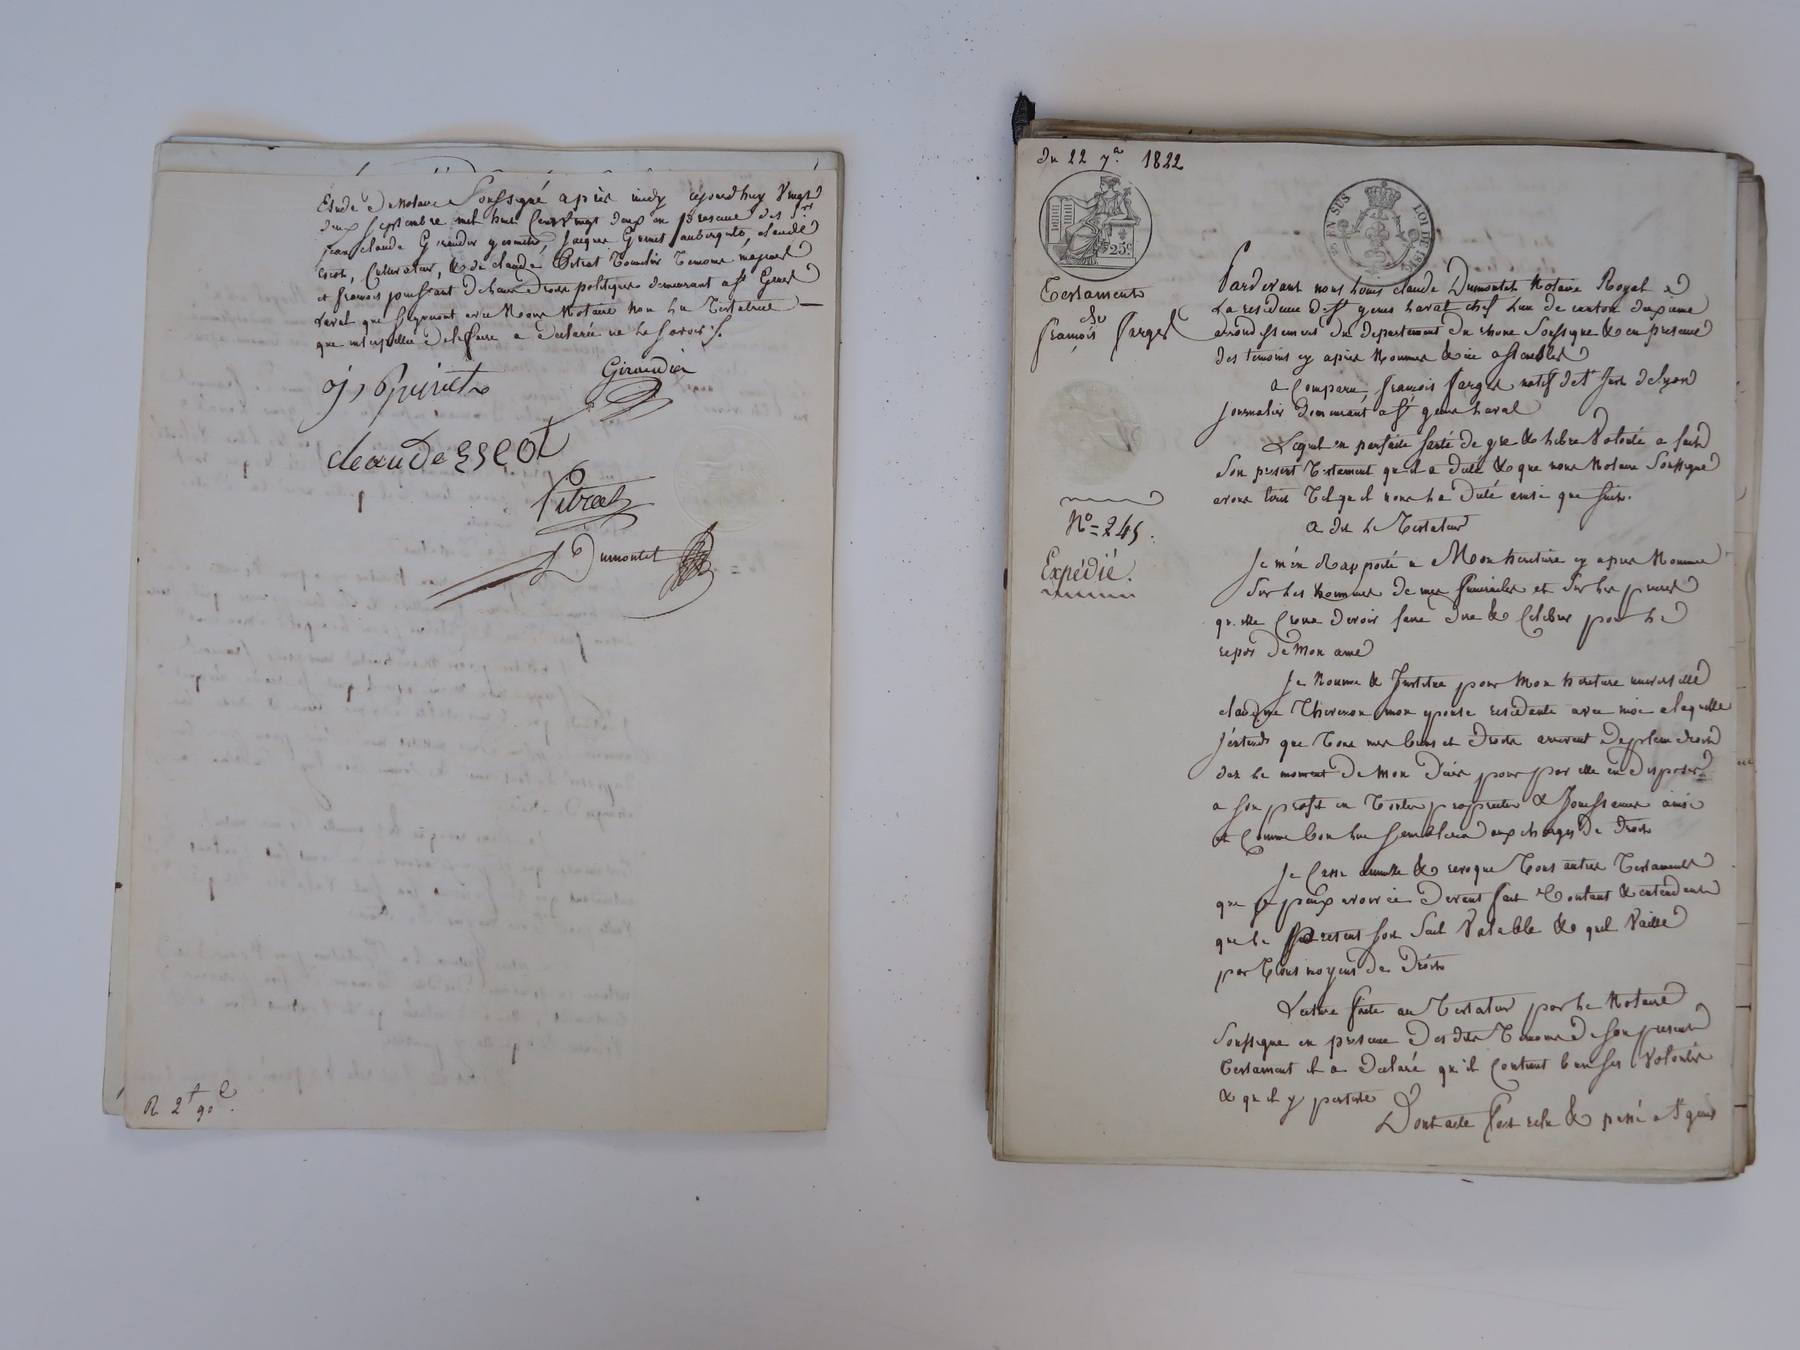 Etude de Notaire Soussigné après midy ce jourd'huy vingt
deux septembre mil huit cent vingt deux en presence des Srs
jean claude Giraudier geometre, jacques Grinet aubergiste, claude
Escot, Cultivateur, & de claude Pitrat Tonnelier Temoins majeurs
et français jouissant de leurs droits politiques demeurant a St Genis
Laval qui signeront avec Nous Notaire Non la Testatrice
que interpellée de le faire a declarée ne le savoir ./.
Giraudier
claude escot
Pitrat
Dumontet
R 2f 90c.
Du 22 7bre 1822
25c.
EN SUS
LOI DE 1816
Testament
de
françois farges
No = 245.
Expédié.
Pardevant nous Louis claude Dumontet Notaire Royal a
La residence de St genis Laval chef lieu de canton deuxieme
arrondissement du departement du rhone Soussigné & en presence
des temoins cy après Nommés & ici assemblés
a Comparu, françois farges natif de St Just de lyon
journalier demeurant a St genis laval
Lequel en parfaite santé de gré & libre Volonté a fait
Son present Testament qu'il a dicté & que nous Notaire Soussigné
avons écrit Tel qu'il nous l'a dicté ainsi que suit.
a dit le Testateur
Je m'en Rapporte a Mon heritiere cy après Nommée
Sur les hommes de mes funerailles et sur les prieres
qu'elle croira devoir faire dire & Celebrer pour le
repos de Mon ame
Je Nomme & Institue pour Mon heritiere universelle
claudine Thevenon mon epouse residente avec moi a laquelle
j'entends que Tous mes biens et Droits arrivent de plein droit
dez le moment de Mon Décès pour par elle en disposer
a son profit en Toutes proprietés & Jouissance ainsi
et Comme bon lui semblera aux charges de Droit
Je Casse annulle & revoque Tous autres Testaments
que je peux avoir ci devant fait Voulant & entendant
que le present soit Seul Valable & qu'il Vaille
par Tous moyens de Droit
Lecture faite au Testateur par le Notaire
Soussigné en presence des dits Temoins de Son present
Testament il a declaré qu'il Contient bien ses Volontés
& qu'il y persiste
Dont acte fait relu & passé a St genis